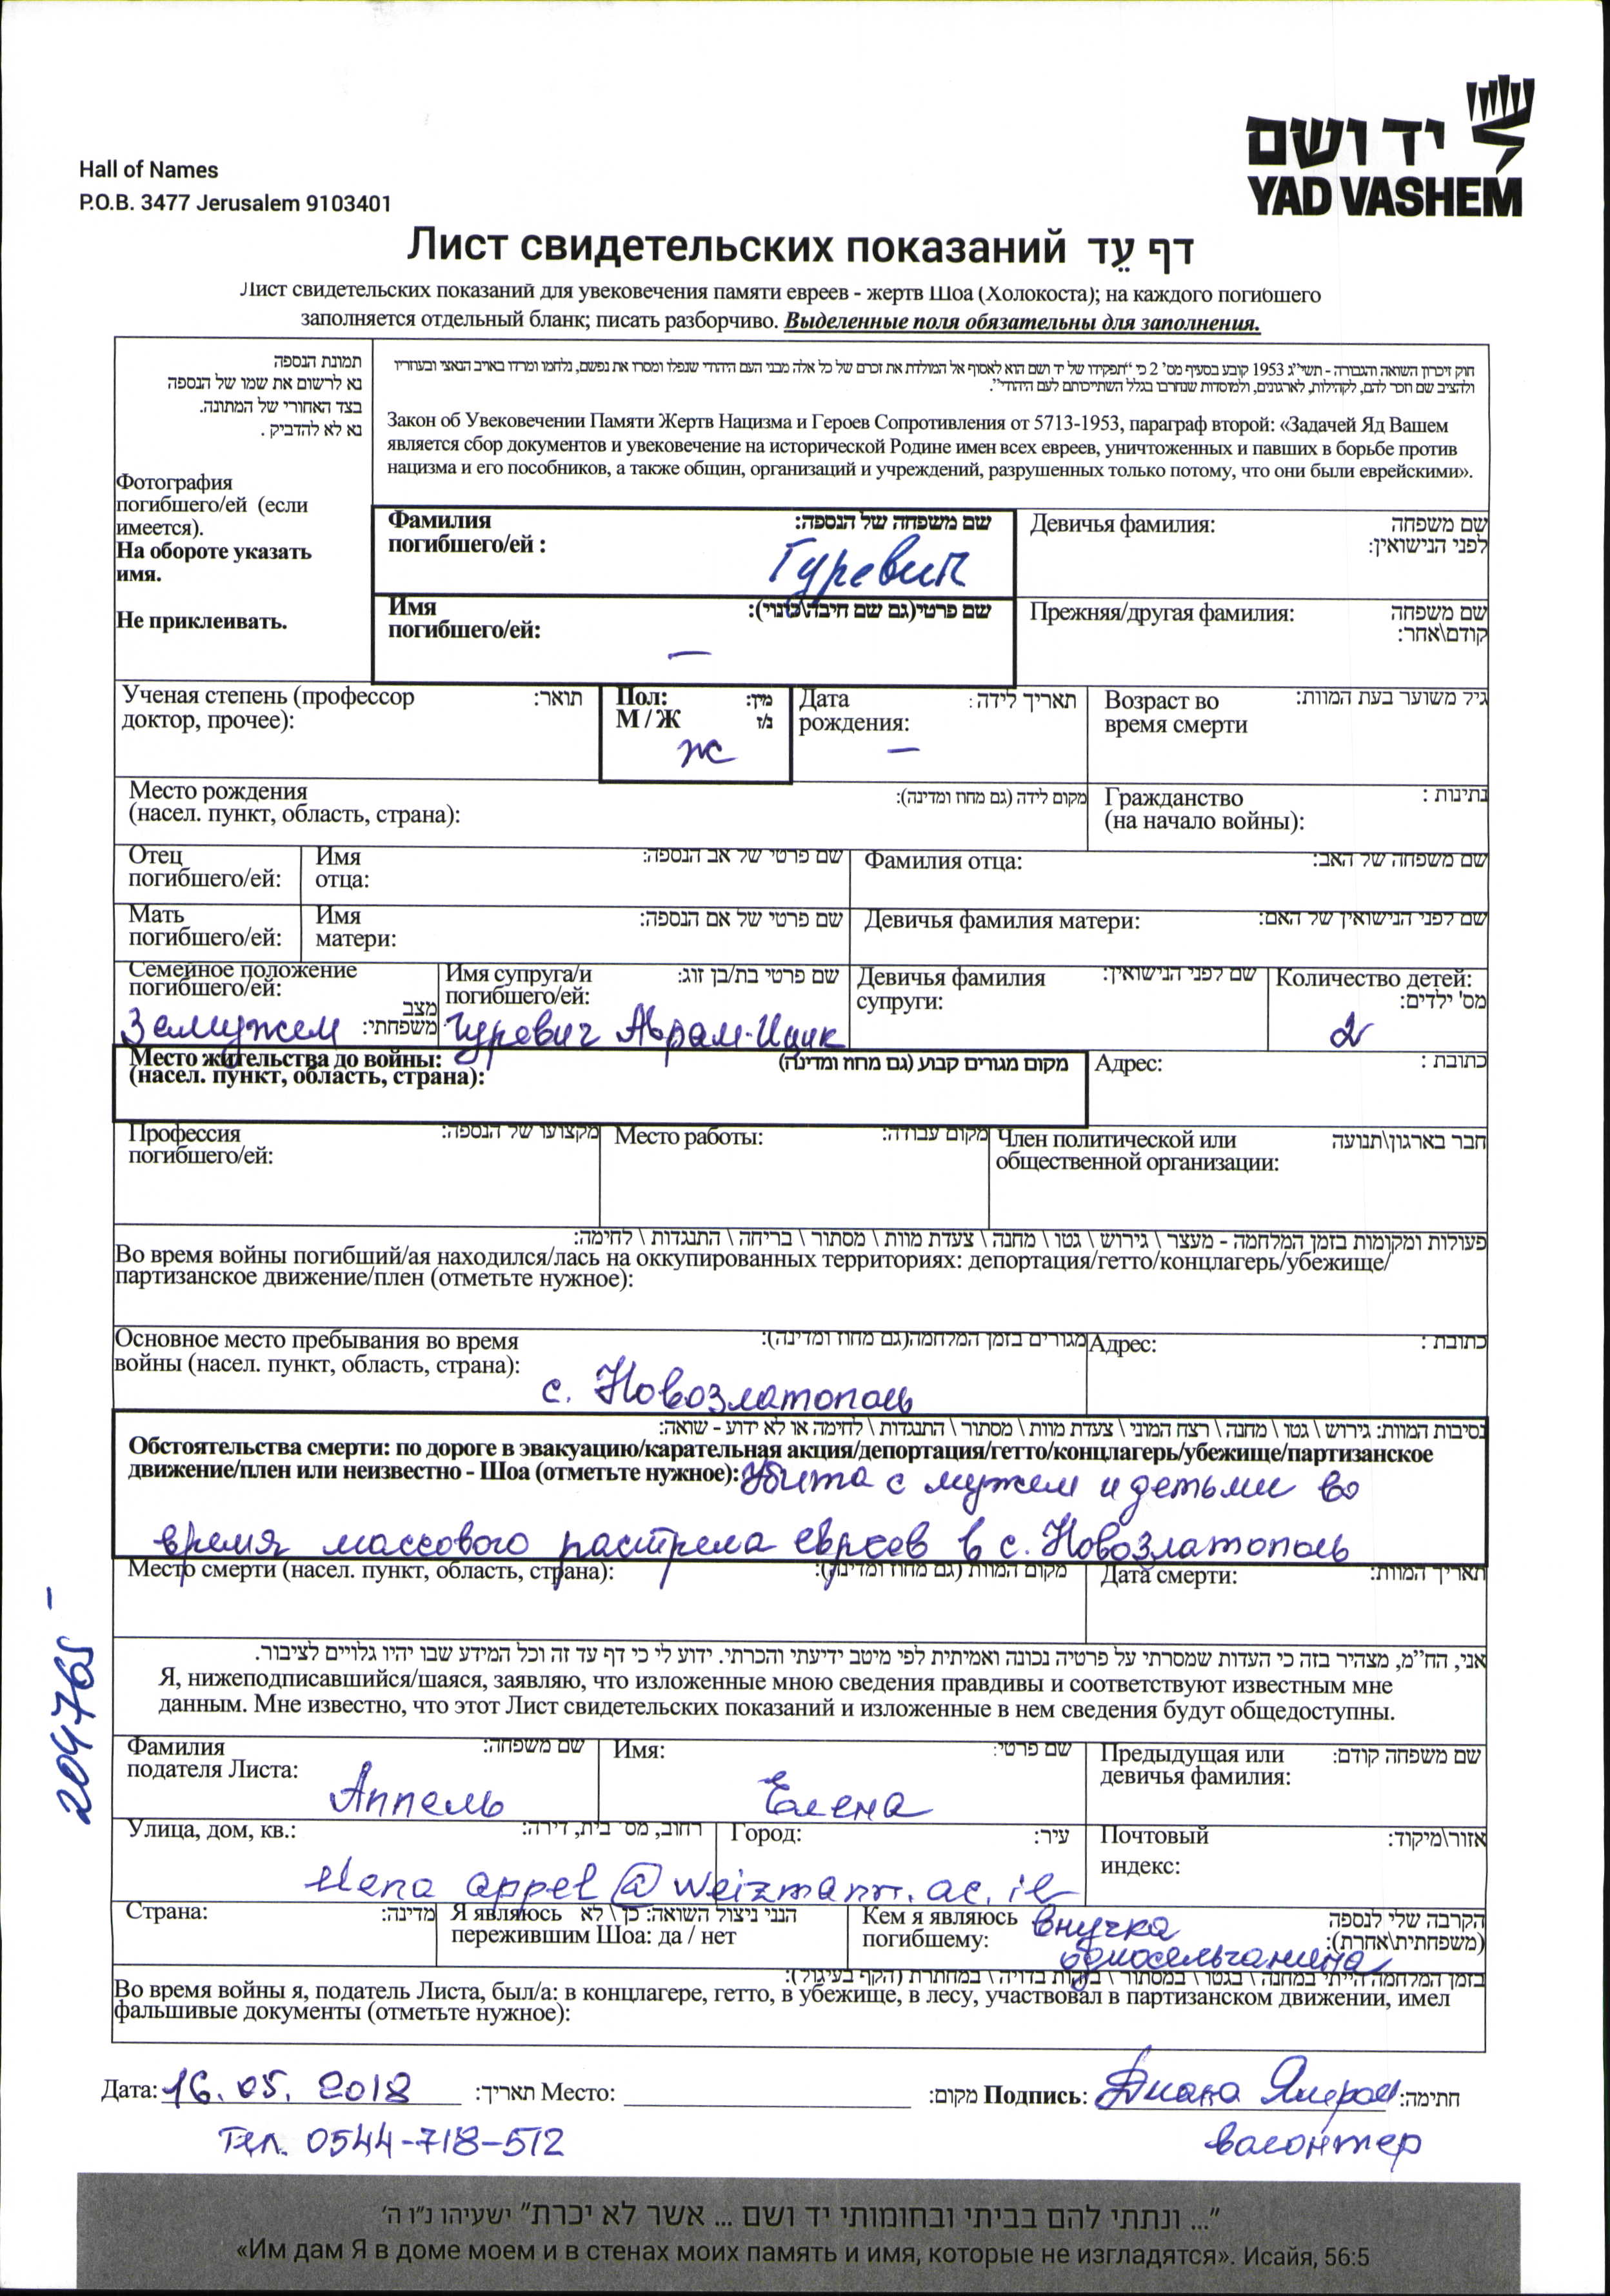 Hall of Names
P.O.B. 3477 Jerusalem 9103401
יד ושם
YAD VASHEM
Лист свидетельских показаний דף עֵד
Лист свидетельских показаний для увековечения памяти евреев - жертв Шоа (Холокоста); на каждого погибшего
заполняется отдельный бланк; писать разборчиво. Выделенные поля обязательны для заполнения.
תמונת הנספה
נא לרשום את שמו של הנספה
בצד האחורי של התמונה.
נא לא להדביק .
Фотография
погибшего/ей (если
имеется).
На обороте указать
имя.
Не приклеивать.
חוק זיכרון השואה והגבורה - תשי"ג 1953 קובע בסעיף מס' 2 כי "תפקידו של יד ושם הוא לאסוף אל המולדת את זכרם של כל אלה מבני העם היהודי שנפלו ומסרו את נפשם, נלחמו ומרדו באויב הנאצי ובעוזריו
ולהציב שם וזכר להם, לקהילות, לארגונים, ולמוסדות שנחרבו בגלל השתייכותם לעם היהודי".
Закон об Увековечении Памяти Жертв Нацизма и Героев Сопротивления от 5713-1953, параграф второй: «Задачей Яд Вашем
является сбор документов и увековечение на исторической Родине имен всех евреев, уничтоженных и павших в борьбе против
нацизма и его пособников, а также общин, организаций и учреждений, разрушенных только потому, что они были еврейскими».
Фамилия שם משפחה של הנספה:
погибшего/ей :
Гуревич
Девичья фамилия: שם משפחה
לפני הנישואין:
Имя שם פרטי(גם שם חיבה\כינוי):
погибшего/ей:
—
Прежняя/другая фамилия: שם משפחה
קודם\אחר:
Ученая степень (профессор תואר:
доктор, прочее):
Пол: מין:
М / Ж ז/נ
ж
Дата תאריך לידה:
рождения:
—
Возраст во גיל משוער בעת המוות:
время смерти
Место рождения
(насел. пункт, область, страна): מקום לידה (גם מחוז ומדינה):
Гражданство נתינות :
(на начало войны):
Отец
погибшего/ей:
Имя שם פרטי של אב הנספה:
отца:
Фамилия отца: שם משפחה של האב:
Мать
погибшего/ей:
Имя שם פרטי של אם הנספה:
матери:
Девичья фамилия матери: שם לפני הנישואין של האם:
Семейное положение
погибшего/ей:
מצב
משפחתי:
Замужем
Имя супруга/и שם פרטי בת/בן זוג:
погибшего/ей:
Гуревич Абрам-Ицик
Девичья фамилия שם לפני הנישואין:
супруги:
Количество детей:
מס' ילדים:
2
Место жительства до войны:
(насел. пункт, область, страна): מקום מגורים קבוע (גם מחוז ומדינה)
Адрес: כתובת :
Профессия מקצועו של הנספה:
погибшего/ей:
Место работы: מקום עבודה:
Член политической или חבר בארגון\תנועה
общественной организации:
פעולות ומקומות בזמן המלחמה - מעצר \ גירוש \ גטו \ מחנה \ צעדת מוות \ מסתור \ בריחה \ התנגדות \ לחימה:
Во время войны погибший/ая находился/лась на оккупированных территориях: депортация/гетто/концлагерь/убежище/
партизанское движение/плен (отметьте нужное):
Основное место пребывания во время מגורים בזמן המלחמה(גם מחוז ומדינה):
войны (насел. пункт, область, страна):
с. Новозлатополь
Адрес: כתובת :
נסיבות המוות: גירוש \ גטו \ מחנה \ רצח המוני \ צעדת מוות \ מסתור \ התנגדות \ לחימה או לא ידוע - שואה:
Обстоятельства смерти: по дороге в эвакуацию/карательная акция/депортация/гетто/концлагерь/убежище/партизанское
движение/плен или неизвестно - Шоа (отметьте нужное): Убита с мужем и детьми во
время массового растрела евреев в с. Новозлатополь
Место смерти (насел. пункт, область, страна): מקום המוות (גם מחוז ומדינה):
Дата смерти: תאריך המוות:
אני, הח"מ, מצהיר בזה כי העדות שמסרתי על פרטיה נכונה ואמיתית לפי מיטב ידיעתי והכרתי. ידוע לי כי דף עד זה וכל המידע שבו יהיו גלויים לציבור.
Я, нижеподписавшийся/шаяся, заявляю, что изложенные мною сведения правдивы и соответствуют известным мне
данным. Мне известно, что этот Лист свидетельских показаний и изложенные в нем сведения будут общедоступны.
Фамилия שם משפחה:
подателя Листа:
Аппель
Имя: שם פרטי:
Елена
Предыдущая или שם משפחה קודם:
девичья фамилия:
Улица, дом, кв.: רחוב, מס' בית, דירה:
Город: עיר:
Почтовый אזור\מיקוד:
индекс:
elena appel@weizmann.ac.il
Страна: מדינה:
Я являюсь הנני ניצול השואה: כן \ לא
пережившим Шоа: да / нет
Кем я являюсь הקרבה שלי לנספה
погибшему: (משפחתית\אחרת):
внучка
односельчанина
בזמן המלחמה הייתי במחנה \ בגטו \ במסתור \ בזהות בדויה \ במחתרת (הקף בעיגול):
Во время войны я, податель Листа, был/а: в концлагере, гетто, в убежище, в лесу, участвовал в партизанском движении, имел
фальшивые документы (отметьте нужное):
Дата: 16.05.2018 תאריך: Место: מקום: Подпись: Диана חתימה:
Тел. 0544-718-512
волонтер
204765 -
"... ונתתי להם בביתי ובחומותי יד ושם ... אשר לא יכרת" ישעיהו נ"ו ה'
«Им дам Я в доме моем и в стенах моих память и имя, которые не изгладятся». Исайя, 56:5